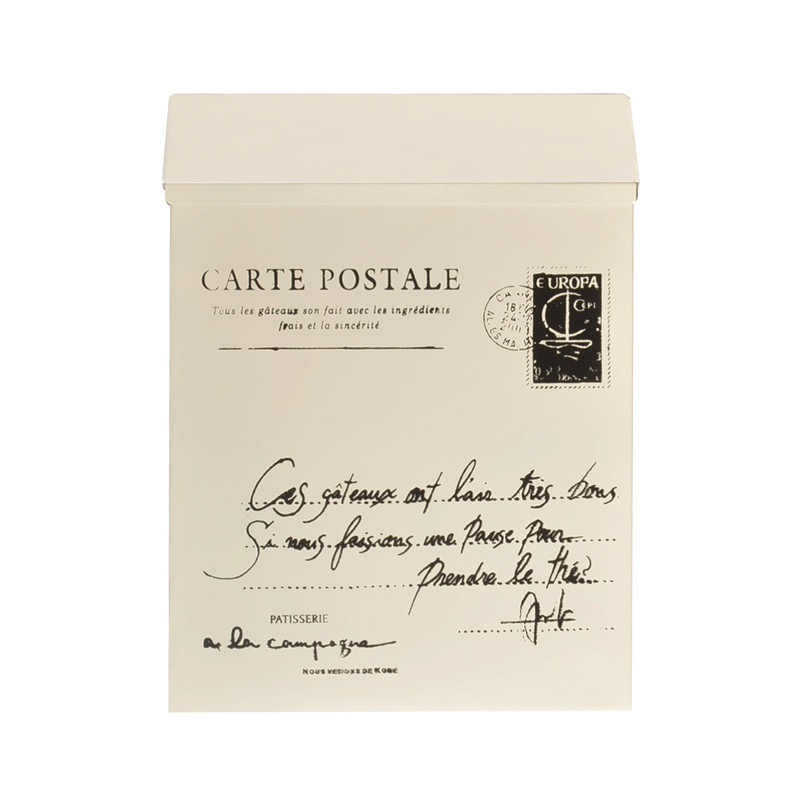 CARTE POSTALE
Tous les gâteaux son fait avec les ingrédients
frais et la sincérité
EUROPA
CEPT
Ces gâteaux ont l'air très bons
Si nous faisions une Pause Pour
Prendre le thé?
PATISSERIE
a la campagne
NOUS VEDONS DE KOBE